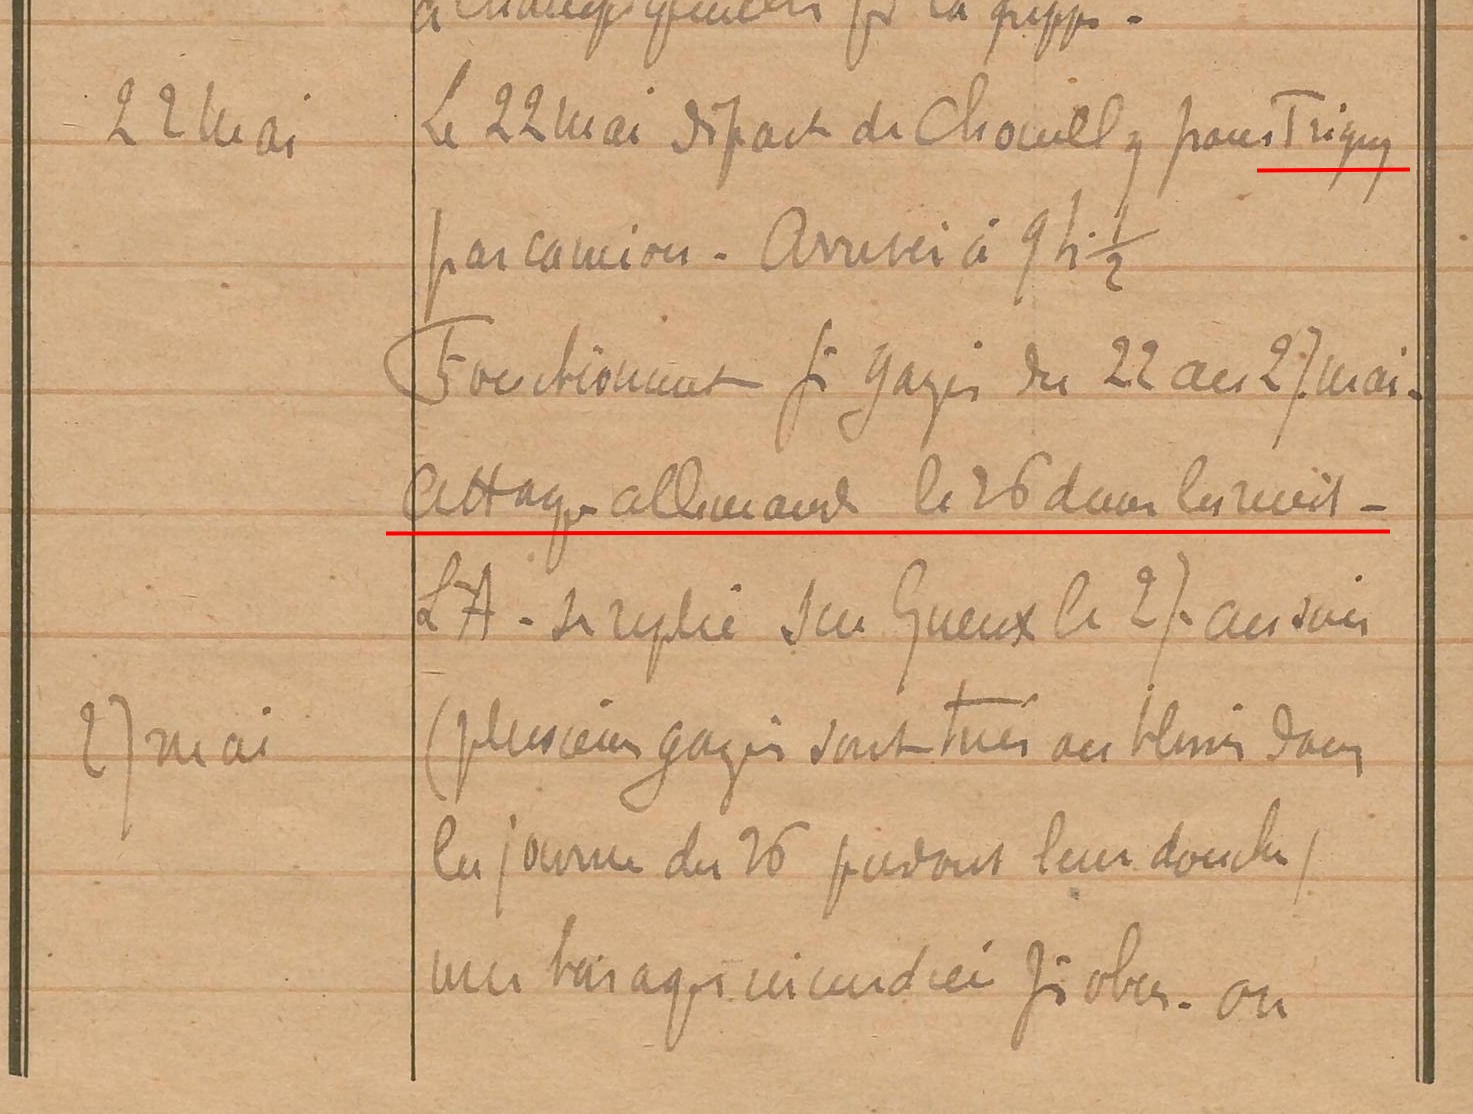 pr la grippe -
22 mai Le 22 mai départ de Chouilly pour Trigny
par camion - Arrivée à 9 h. 1/2
Fonctionnent pr gazés du 22 au 27 mai -
Attaque allemande le 26 dans la nuit -
L'A - se replie sur Gueux le 27 - au soir
27 mai (plusieurs gazés sont tués ou blessés dans
la journée du 26 pendant leur douche)
une baraque incendiée pr obus - on